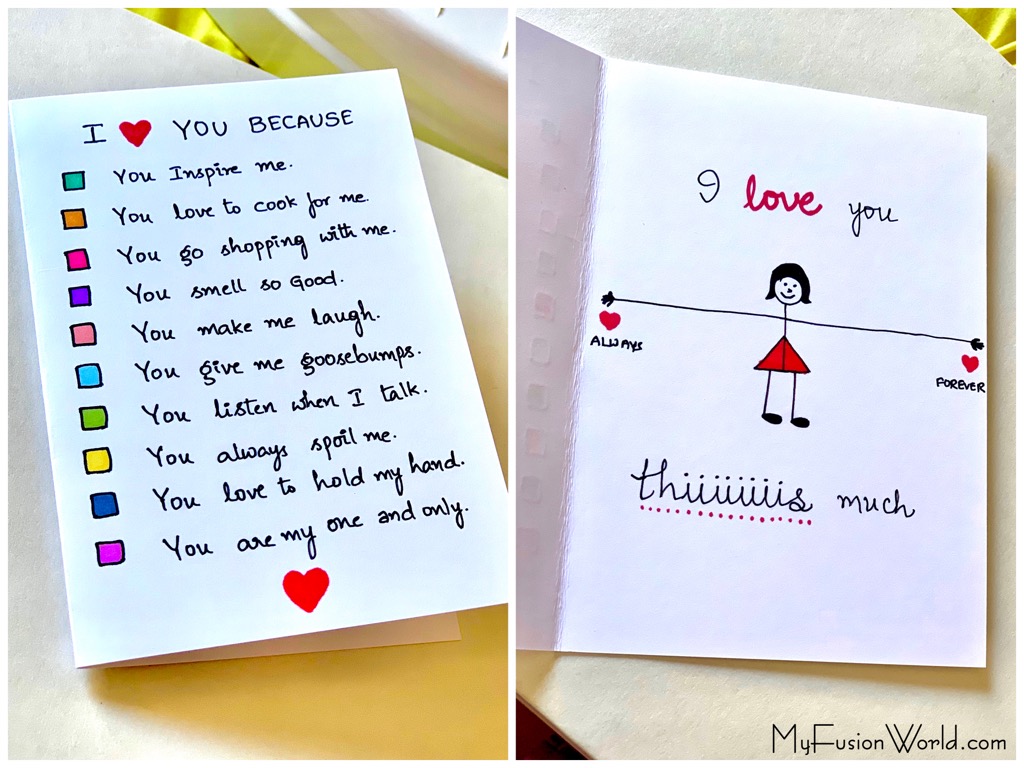 I ❤ YOU BECAUSE
You Inspire me.
You love to cook for me.
You go shopping with me.
You smell so Good.
You make me laugh.
You give me goosebumps.
You listen when I talk.
You always spoil me.
You love to hold my hand.
You are my one and only.
I love you
ALWAYS
FOREVER
thiiiiiiis much
MyFusionWorld.com